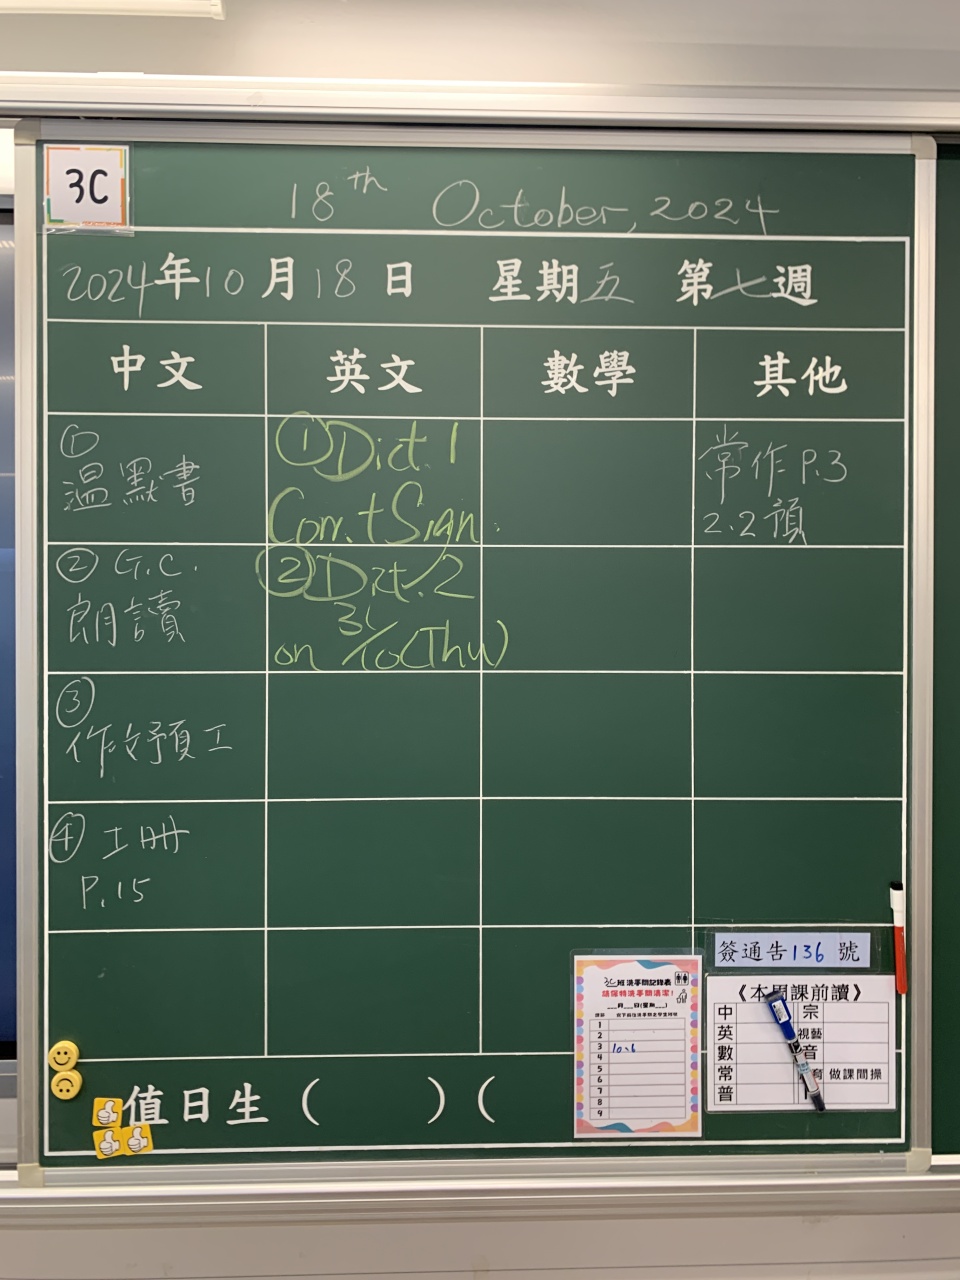 3C
18th October, 2024
2024年10月18日 星期五 第七週
中文 英文 數學 其他
①
溫默書
② G.C.
朗讀
③
作文預工
④ 工冊
P.15
① Dict.1
Corr.+Sign.
② Dict.2
on 31/10(Thu)
常作 P.3
2.2預
簽通告136號
3C班洗手間記錄表
請保持洗手間清潔！
___月___日(星期___)
1
2
3 10、6
4
5
6
7
8
9
《本周課前讀》
中 宗
英 視藝
數 音
常 育 做課間操
普
值日生( )(